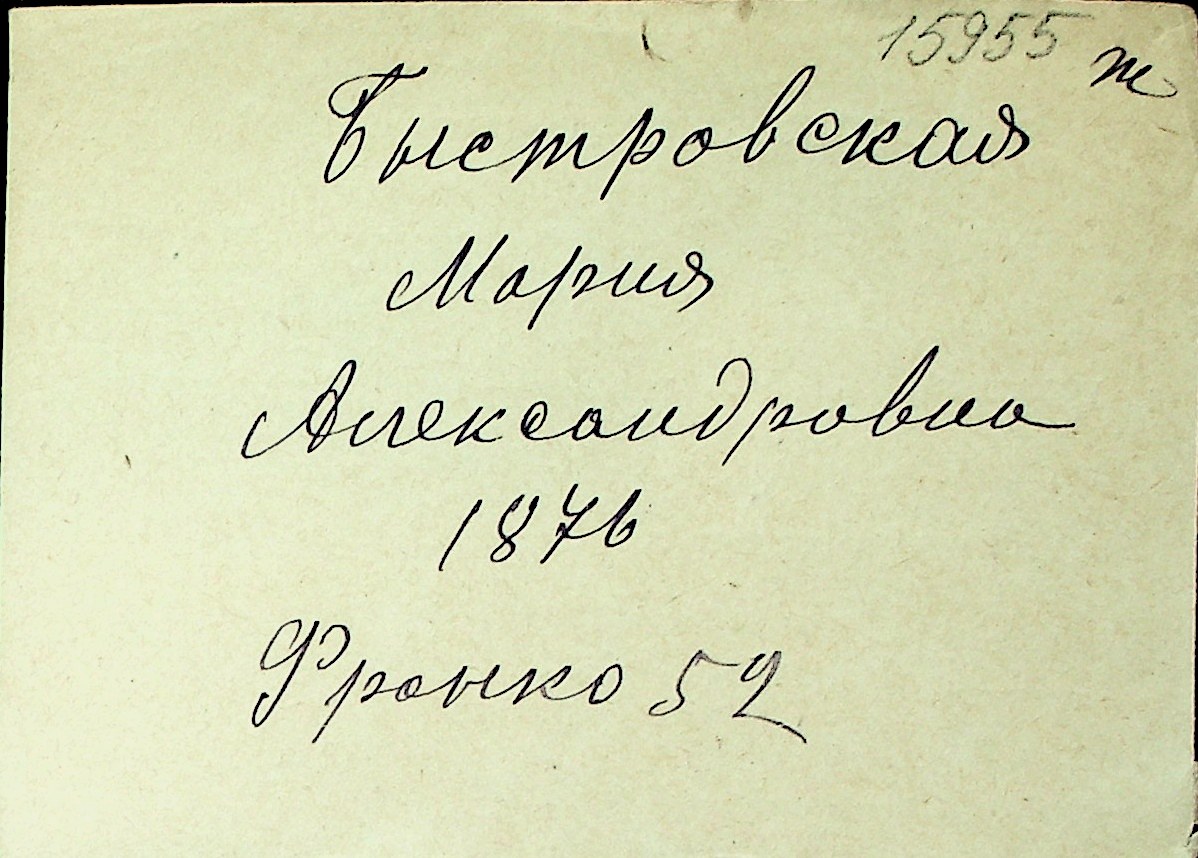 15955 ж
Быстровская
Мария
Александровна
1876
Франко 52